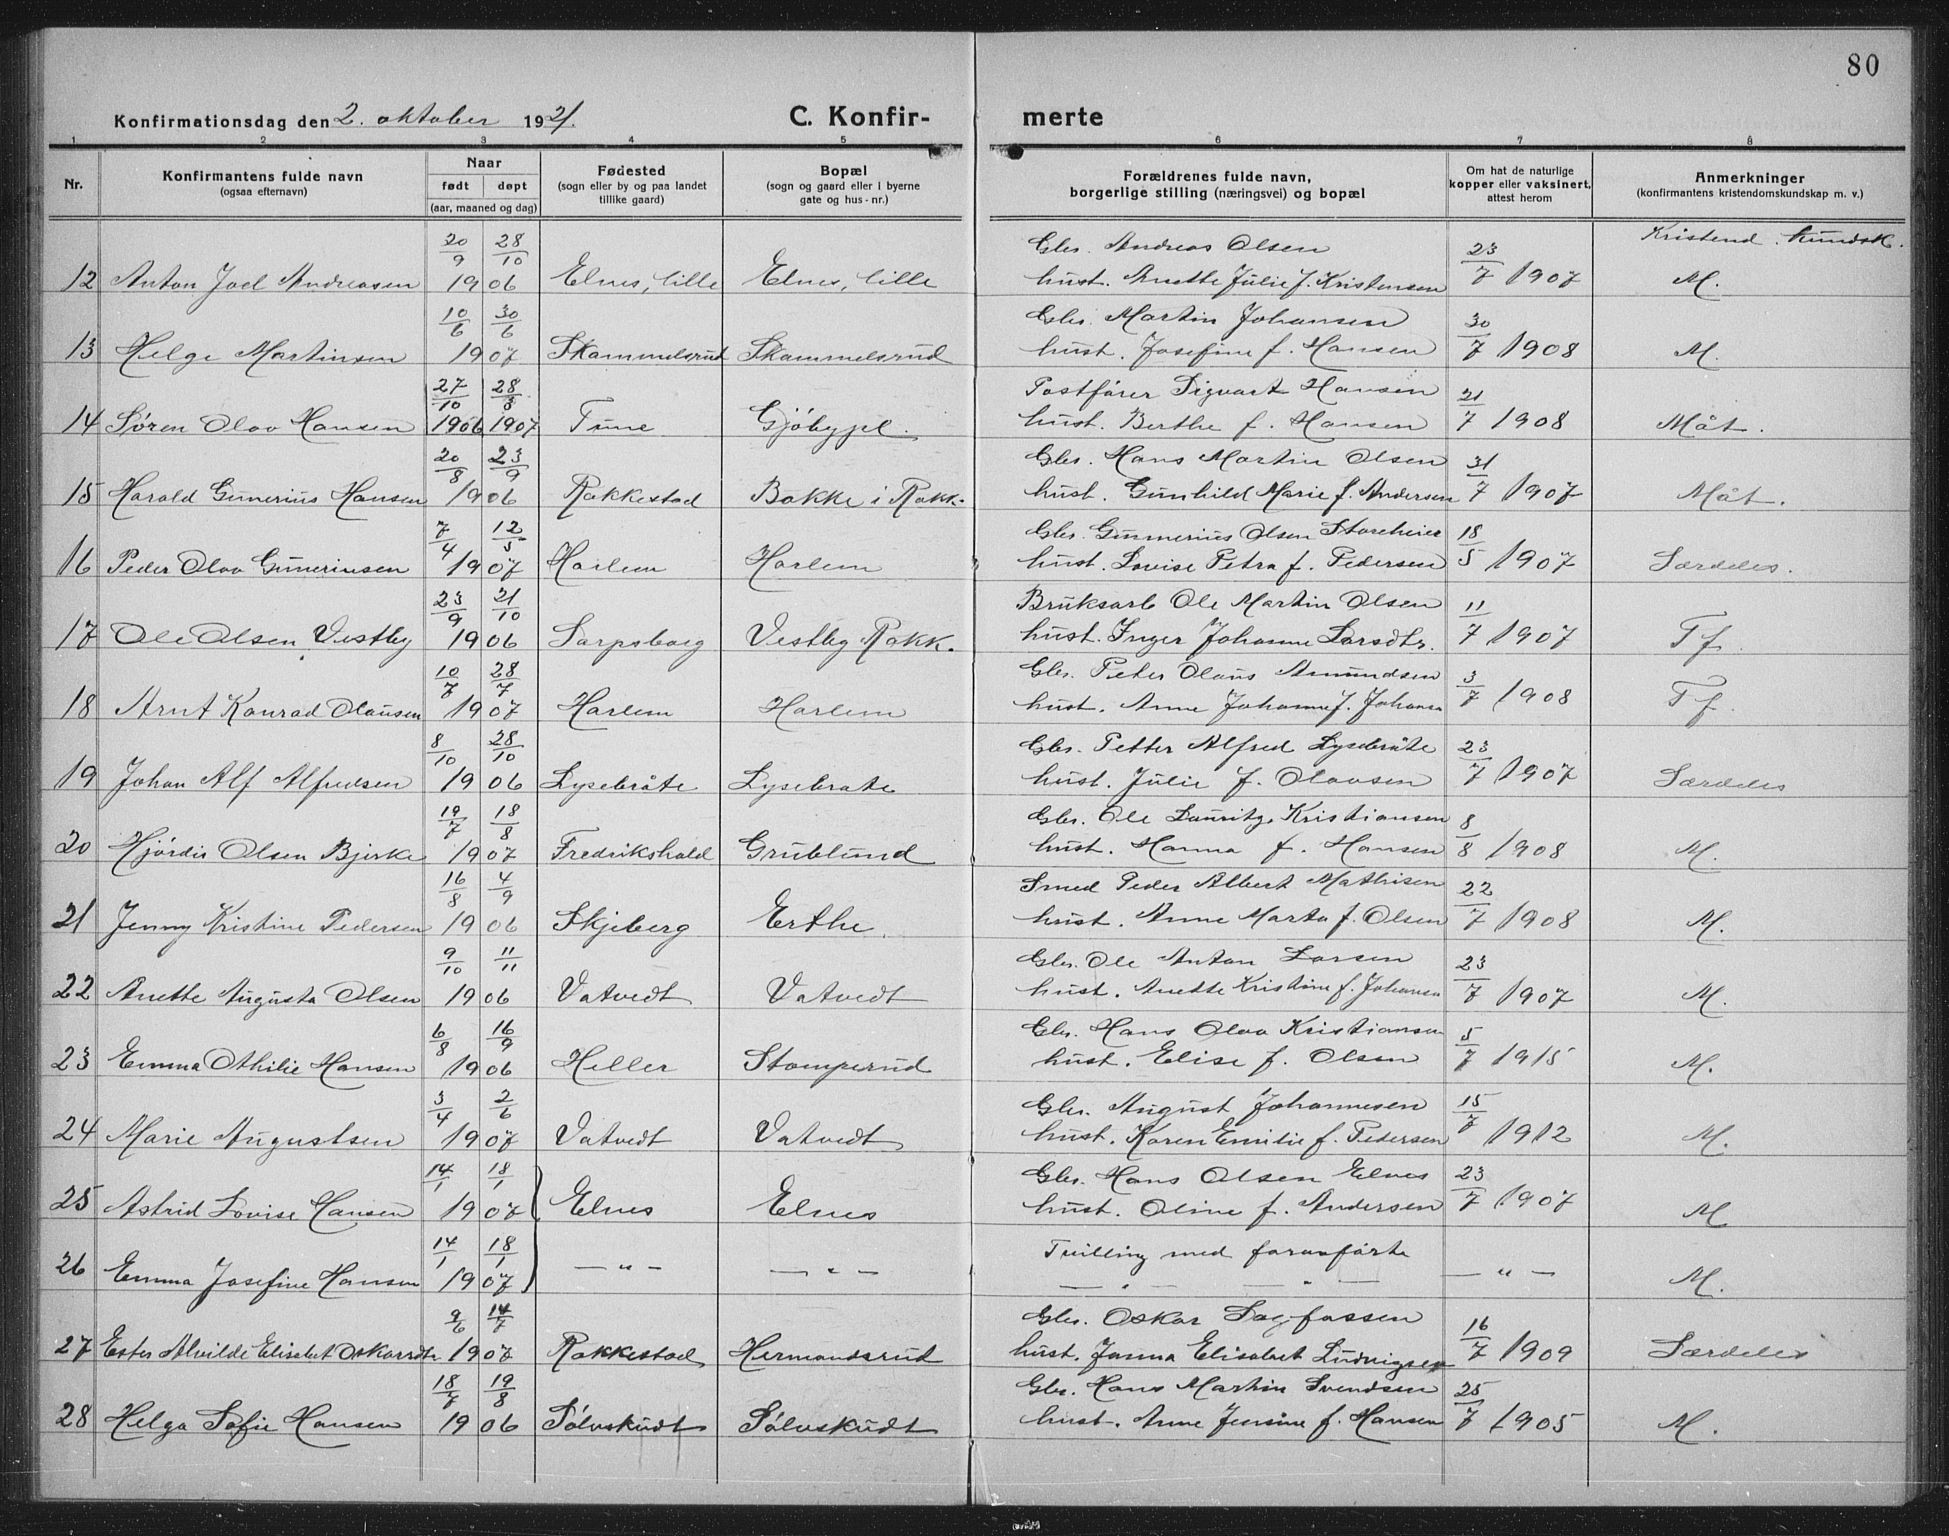 80
Konfirmationsdag den 2. oktober 1921.
C. Konfir- merte
1 2 3 4 5 6 7 8
Nr.
Konfirmantens fulde navn
(ogsaa efternavn)
Naar
født døpt
(aar, maaned og dag)
Fødested
(sogn eller by og paa landet
tillike gaard)
Bopæl
(sogn og gaard eller i byerne
gate og hus-nr.)
Forældrenes fulde navn,
borgerlige stilling (næringsvei) og bopæl
Om hat de naturlige
kopper eller vaksinert,
attest herom
Anmerkninger
(konfirmantens kristendomskundskap m. v.)
Kristend. kundsk.
20/9 28/10 Gbr. Andreas Olsen 23/7
12 Anton Joel Andreasen 1906 Elnes, lille Elnes, lille hust. Anette Julie f. Kristensen 1907 M.
10/6 30/6 Gbr. Martin Johansen 30/7
13 Helge Martinsen 1907 Skammelsrud Skammelsrud hust. Josefine f. Hansen 1908 M.
27/10 28/3 Postfører Sigvart Hansen 21/7
14 Søren Olav Hansen 1906 1907 Tune Gjöbypl. hust. Berthe f. Hansen 1908 Måt.
20/8 23/9 Gbr. Hans Martin Olsen 31/7
15 Harald Gunerius Hansen 1906 Rakkestad Bakke i Rakk. hust. Gunhild Marie f. Andersen 1907 Måt.
7/4 12/5 Gbr. Gunnerius Olsen Storeheier 18/5
16 Peder Olav Guneriusen 1907 Harlem Harlem hust. Lovise Petra f. Pedersen 1907 Særdeles.
23/9 21/10 Bruksarb Ole Martin Olsen 11/7
17 Ole Olsen Vestby 1906 Sarpsborg Vestby Rakk. hust. Inger Johanne Larsdtr. 1907 T f.
10/7 28/7 Gbr. Peter Olaus Amundsen 3/7
18 Arnt Konrad Olausen 1907 Harlem Harlem hust. Anne Johanne f. Johansn 1908 T f.
8/10 28/10 Gbr. Petter Alfred Lysebråte 23/7
19 Johan Alf Alfredsen 1906 Lysebråte Lysebrate hust. Julie f. Olavsen 1907 Særdeles
19/7 18/8 Gbr. Ole Lauritz Kristiansen 8/8
20 Hjördis Olsen Bjerke 1907 Fredrikshald Grublund hust. Hanna f. Hansen 1908 M.
16/8 4/9 Smed Peder Albert Mathisen 22/7
21 Jenny Kristine Pedersen 1906 Skjeberg Erthe. hust. Anne Marta f. Olsen 1908 M.
9/10 11/11 Gbr. Ole Anton Larsen 23/7
22 Anette Augusta Olsen 1906 Vatvedt Vatvedt hust. Anette Kristine f. Johansn 1907 M.
6/8 16/9 Gbr. Hans Olav Kristiansen 5/7
23 Emma Othilie Hansen 1906 Heller Stomperud hust. Elise f. Olsen 1915 M.
3/4 2/6 Gbr. August Johannesen 15/7
24 Marie Augustsen 1907 Vatvedt Vatvedt hust. Karen Emilie f. Pedersen 1912 M.
14/1 18/1 Gbr. Hans Olsen Elnes 23/7
25 Astrid Lovise Hansen 1907 Elnes Elnes hust. Oline f. Andersen 1907 M
14/1 18/1 Tvilling med foranförte
26 Emma Josefine Hansen 1907 — " — — " — — " — — " — — " — M.
9/6 14/7 Gbr. Oskar Sagfossen 16/7
27 Ester Alvilde Elisabet Oskarsdtr 1907 Rakkestad Hermandsrud hust. Janna Elisabet Ludvigsen 1909 Særdeles
18/7 19/8 Gbr. Hans Martin Svendsen 25/7
28 Helga Sofie Hansen 1906 Sölvskudt Sölvskudt hust. Anne Jensine f. Hansen 1905 M.